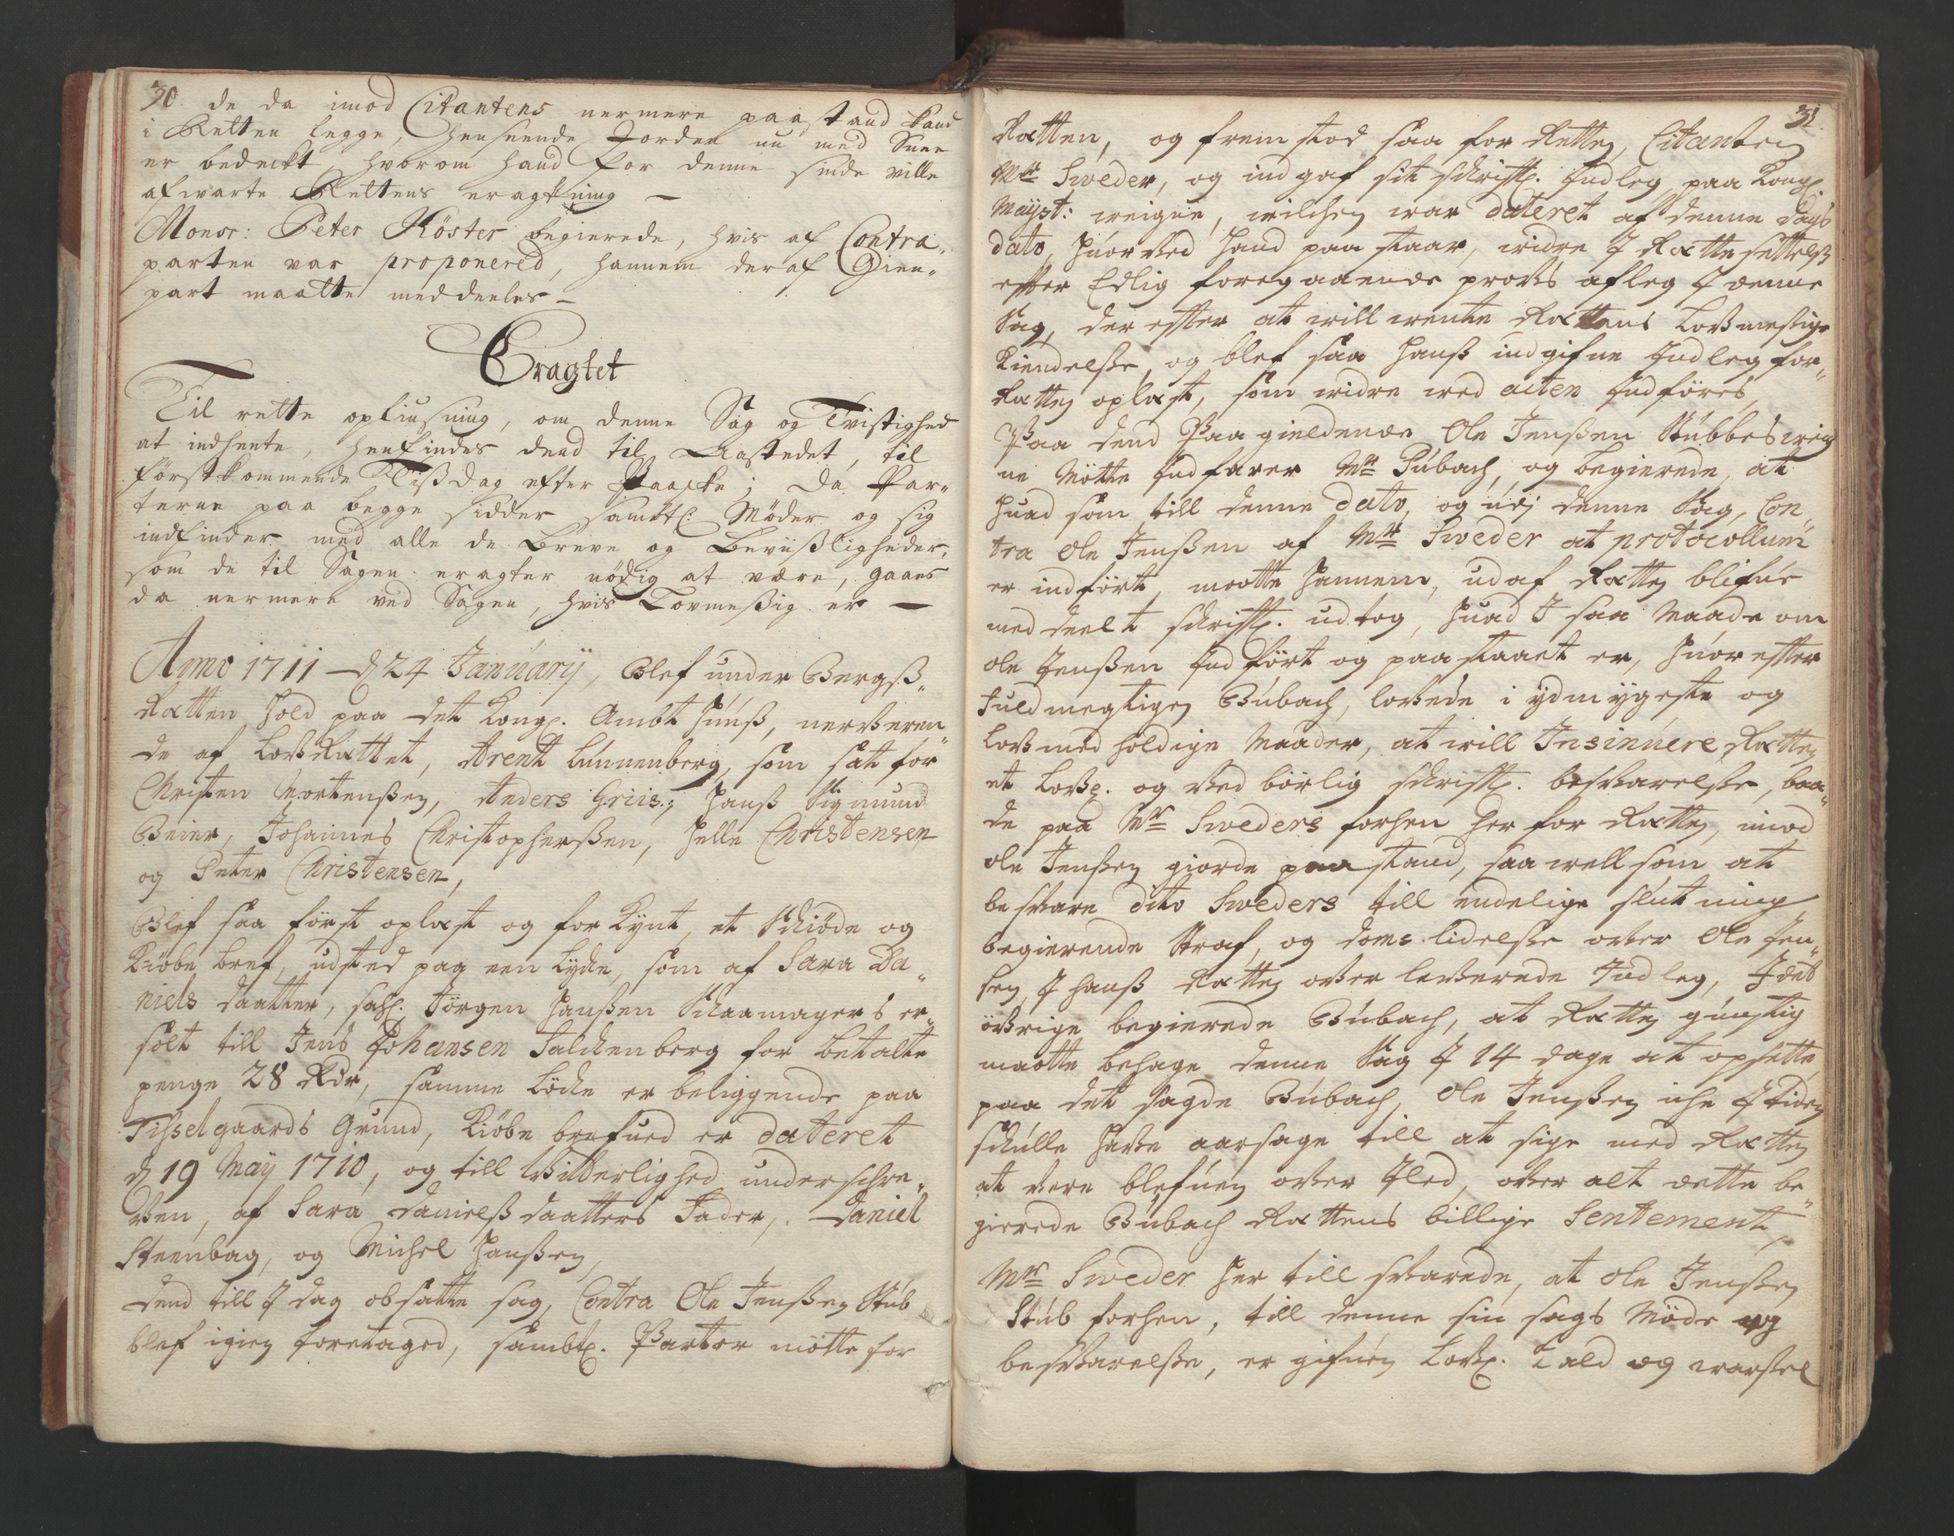 30. de da imod Citantens nermere paastand kand
i Retten legge, henseende Jorden nu med Snee
er bedeckt, hvorom hand for denne sinde ville
afwarte Rettens eragtning —
Monsr: Peter Köster begierede, hvis af Contra-
parten var proponered, hannem deraf Gien-
part maatte meddeeles —
Eragtet
Til rette oplysning, om denne Sag og Tvistighed
at indhente, henfindes dend til Aastedet, til
förstkommende Tissdag efter Paaske; da Par-
terne paa begge sidder sambtl: Möder og sig
indfinder med alle de Breve og Beviißligheder,
som de til Sagen eragter nödig at være, gaaes
da nermere ved Sagen, hvis Lovmeßig er —
Anno 1711 — d 24 Januarij, Blef under Bergß-
Rætten hold paa det Kongl. Ambt Huuß, nerværen-
de af LovRættet, Arent Lunnenberg, som sat for
Christen Mortenßen, Anders Griis:, Hanß Sigmund
Beier, Johannes Christopherßen, Helle Christensen
og Peter Christensen,
Blef saa först oplæst og forKynt, et Skiöde og
Kiöbe bref, udsted paa een Lycke, som af Sara Da-
niels daatter, sahl. Jörgen Hanßen Skaamagers er
solt till Jens Johansen Falckenberg for betalte
penge 28 Rdr, samme Löcke er beliggende paa
Tisselgaards Grund, Kiöbe brefued er dateret
d 19 May 1710, og till Vitterlighed underschre-
ven, af Sara Danielß daatters Fader, Daniel
Steenbag, og Michel Hanßen,
dend till I dag obsatte sag, Contra Ole Jenßen Stub
blef igien foretaged, sambtl. Parter mötte for
31.
Rætten, og fremstod saa for Retten, Citanten
Mr Sweder, og indgaf sit skriftl. Indleg paa Kongl.
Mayst: weigne, wilchen war dateret af denne Dags
dato, huorved hand paastaar, widre I Rættesettelß
efter Edlig foregaaende provs afleg I denne
Sag, der efter at will wente Rættens Lovmeßige
Kiendelße, og blef saa hanß indgifne Indleg for-
Rætten oplæst, som widre wed acten Indföres,
Paa dend Paagieldende Ole Jenßen Stubbes weig
ne Mötte Indfarer Mr Bubach, og begierede, at
huad som till denne dato, og udj denne Sag, Con
tra Ole Jenßen af Mr Sweder at protocollum
er indfört, maatte hannem, ud af Rætten blifue
meddeelt skriftl. udtog, huad I saa Maade om
Ole Jenßen Indfört og paastaaet er, huor efter
fuldmegtigen Bubach, lovede i ydmygeste og
Lovmedholdige Maader, at will Insinuere Rætten
et Lovl. og ved börlig skriftl. besvarelße, baa-
de paa Mr Sweders forhen her for Rætten, imod
Ole Jenßen giorde paastand, saa well som at
besvare dito Sweders till endelige slutning
begierende Straf, og doms lidelße over Ole Jen-
sen, I hanß Rætten overleverede Indleg, Idet
övrige begierede Bubach, at Rætten gunstig
maatte behage denne Sag I 14 dage at opsette,
paa det sagde Bubach, Ole Jenßen iche I tiden
skulle have aarsage till at sige med Rætten
at vere blefuen over Iled, over alt dette be-
gierede Bubach Rættens billige Sentement,
Mr Sweder her till svarede, at Ole Jenßen
Stub forhen, till denne sin sags Möde og
besvarelße, er gifuen Lovl. Kald og warßel